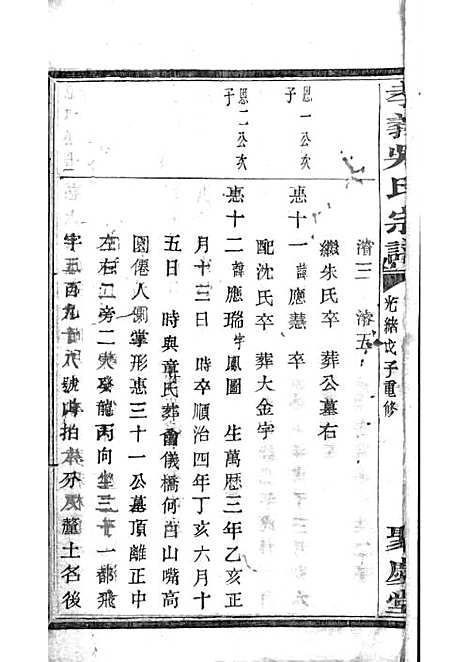 孝義吳氏宗譜
光緒戊子重修
聚慶堂
濬三 濬五
繼朱氏卒 葬公墓右
恩一公次子
惠十一諱應慧卒 葬
配沈氏卒 葬大金字
恩二公次子
惠十二諱應瑞字鳳圖 生萬曆三年乙亥正
月十三日 時卒順治四年丁亥六月十
五日 時與章氏葬 儀橋何百山嘴高
園僊人圓掌形惠三十一公墓頂離正中
左右二旁二穴癸龍丙向坐三十一都飛
字五百九十八號
土名後